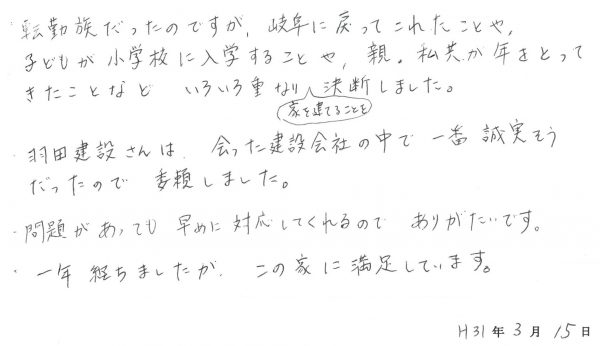 転勤族だったのですが、岐阜に戻ってこれたことや、
子どもが小学校に入学することや、親。私共が年をとって
きたことなど いろいろ重なり 決断しました。
家を建てることを
・羽田建設さんは、会った建設会社の中で一番誠実そう
だったので 委頼しました。
・問題があっても 早めに対応してくれるので ありがたいです。
・一年経ちましたが、この家に満足しています。
H31年3月15日